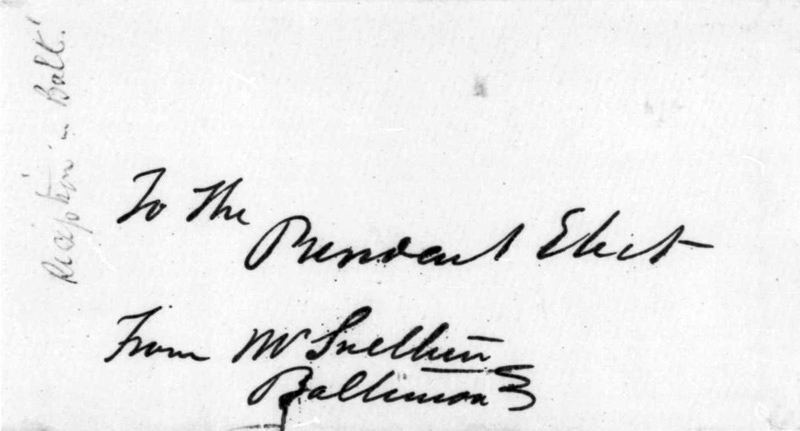 Reception in Balt.
To The
President Elect
From Mr Snethen
Baltimore